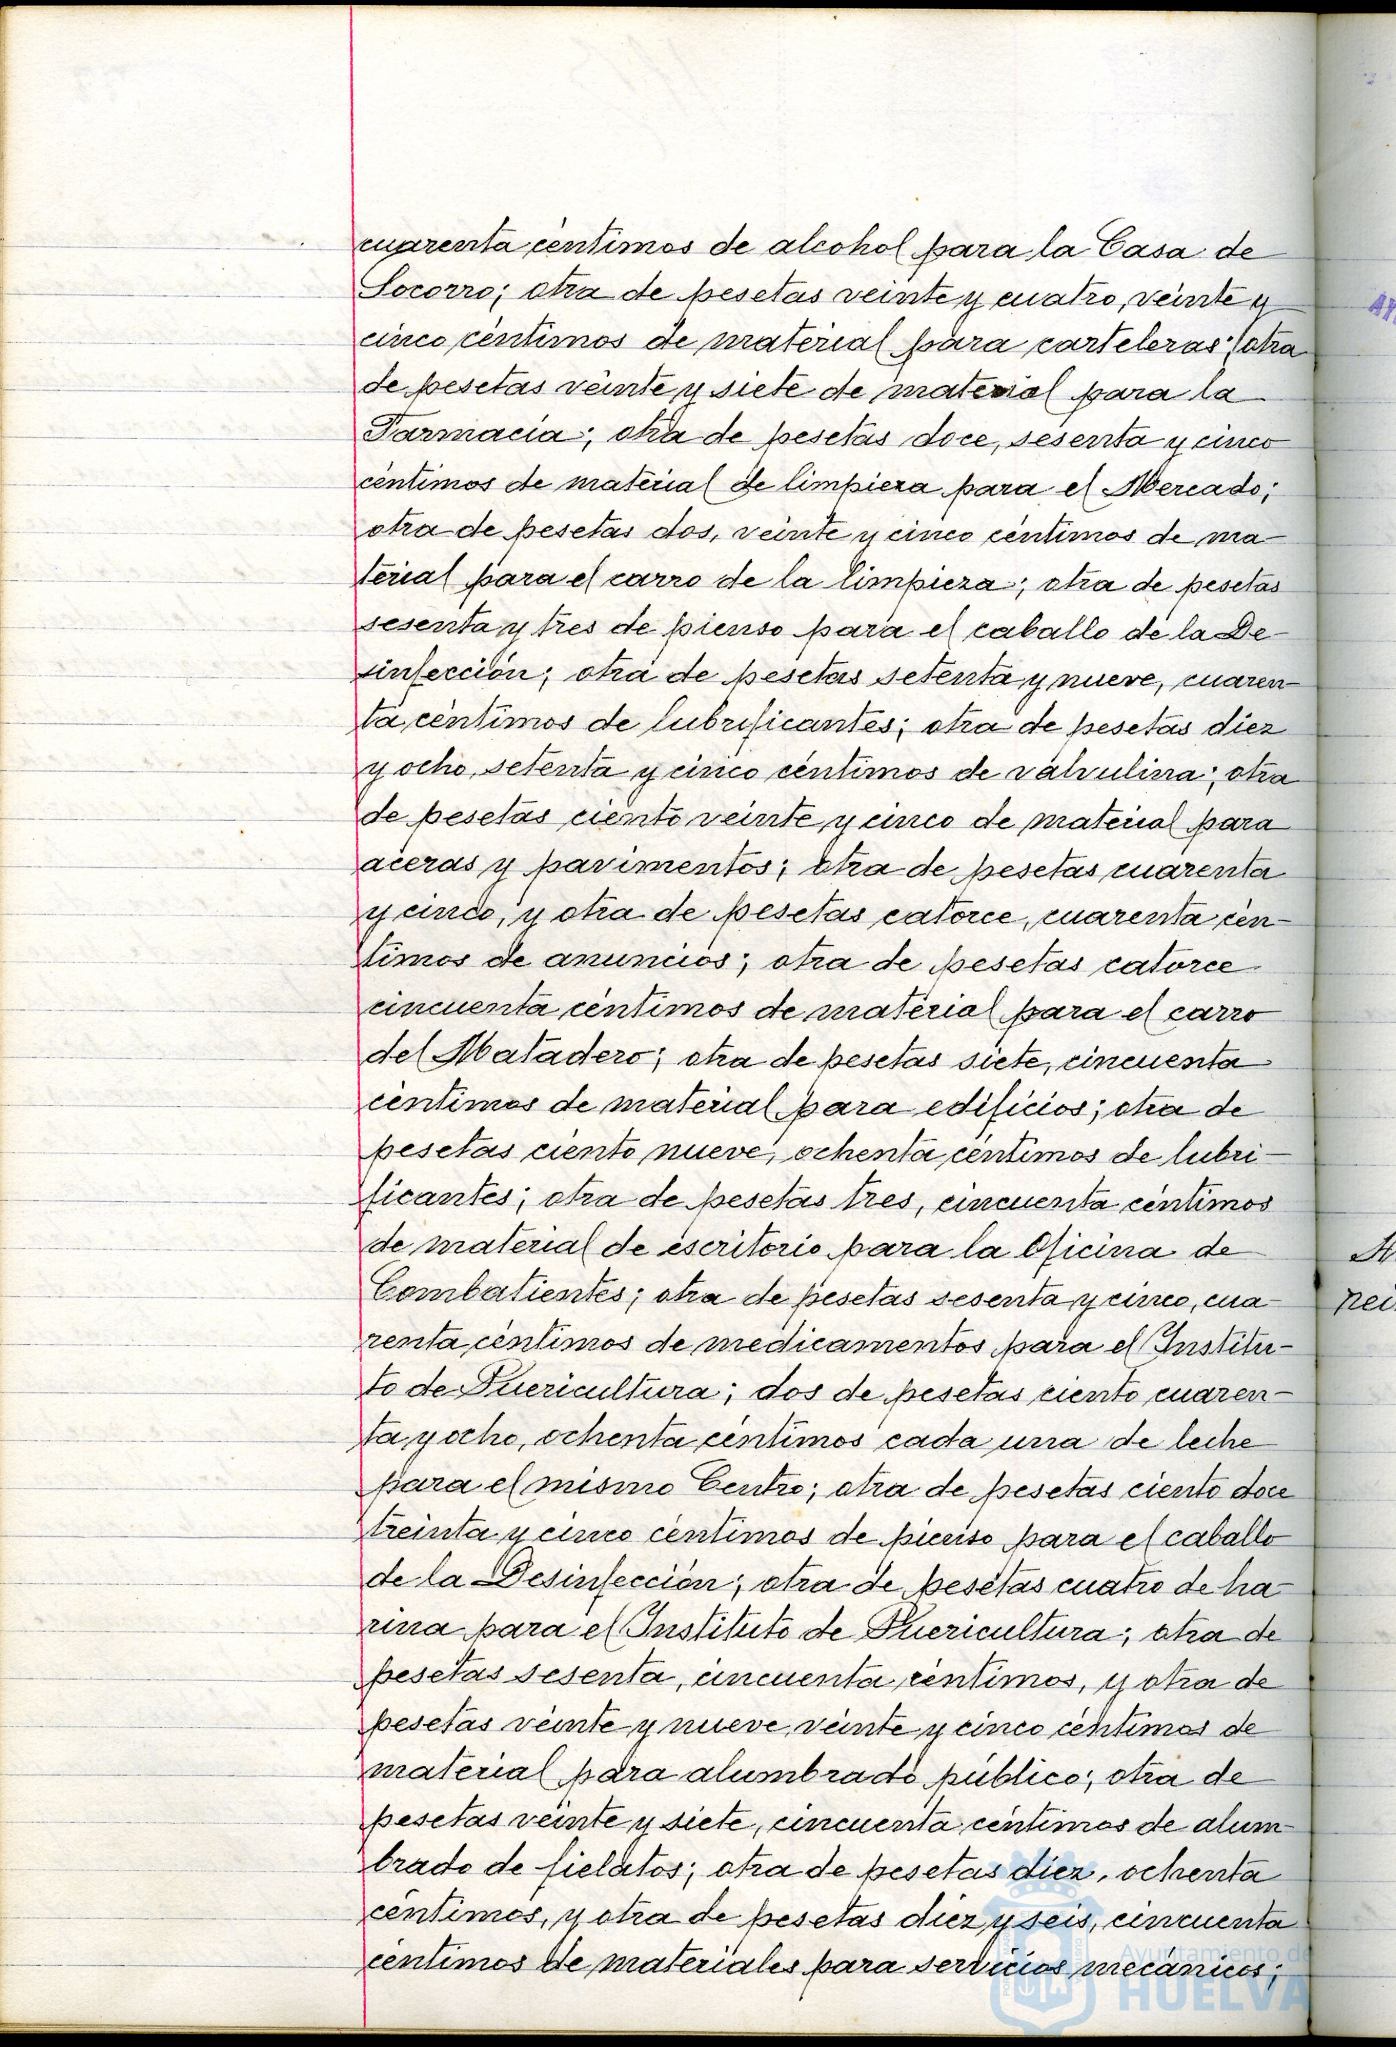 cuarenta céntimos de alcohol para la Casa de
Socorro; otra de pesetas veinte y cuatro, veinte y
cinco céntimos de material para carteleras; otra
de pesetas veinte y siete de material para la
Farmacia; otra de pesetas doce, sesenta y cinco
céntimos de material de limpieza para el Mercado;
otra de pesetas dos, veinte y cinco céntimos de ma-
terial para el carro de la limpieza; otra de pesetas
sesenta y tres de pienso para el caballo de la De-
sinfección; otra de pesetas setenta y nueve, cuaren-
ta céntimos de lubrificantes; otra de pesetas diez
y ocho, setenta y cinco céntimos de valvulina; otra
de pesetas ciento veinte y cinco de material para
aceras y pavimentos; otra de pesetas cuarenta
y cinco, y otra de pesetas catorce, cuarenta cén-
timos de anuncios; otra de pesetas catorce
cincuenta céntimos de material para el carro
del Matadero; otra de pesetas siete, cincuenta
céntimos de material para edificios; otra de
pesetas ciento nueve, ochenta céntimos de lubri-
ficantes; otra de pesetas tres, cincuenta céntimos
de material de escritorio para la Oficina de
Combatientes; otra de pesetas sesenta y cinco, cua-
renta céntimos de medicamentos para el Institu-
to de Puericultura; dos de pesetas ciento cuaren-
ta y ocho, ochenta céntimos cada una de leche
para el mismo Centro; otra de pesetas ciento doce
treinta y cinco céntimos de pienso para el caballo
de la Desinfección; otra de pesetas cuatro de ha-
rina para el Instituto de Puericultura; otra de
pesetas sesenta, cincuenta céntimos, y otra de
pesetas veinte y nueve, veinte y cinco céntimos de
material para alumbrado público; otra de
pesetas veinte y siete, cincuenta céntimos de alum-
brado de fielatos; otra de pesetas diez, ochenta
céntimos, y otra de pesetas diez y seis, cincuenta
céntimos de materiales para servicios mecánicos;
Ayuntamiento de
HUELVA